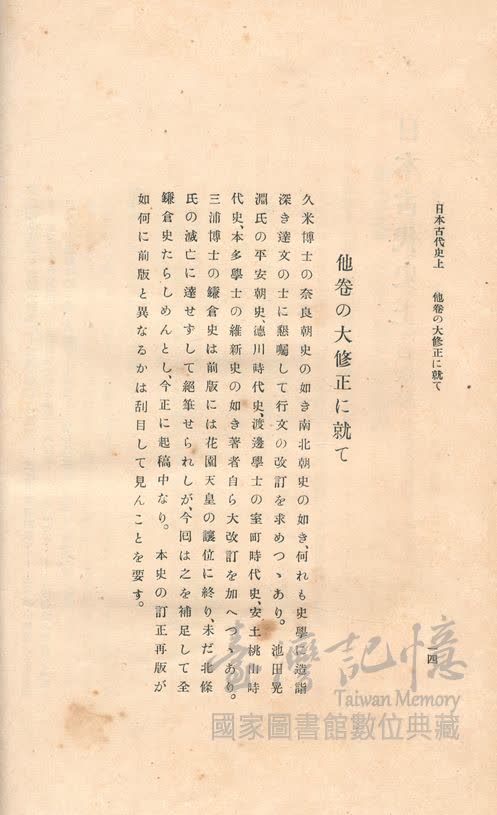 日本古代史上　他卷の大修正に就て
一四
他卷の大修正に就て
久米博士の奈良朝史の如き南北朝史の如き、何れも史學に造詣
深き達文の士に懇囑して行文の改訂を求めつゝあり。池田晃
淵氏の平安朝史、德川時代史、渡邊學士の室町時代史、安土桃山時
代史、本多學士の維新史の如き著者自ら大改訂を加へつゝあり。
三浦博士の鎌倉史は前版には花園天皇の讓位に終り、未だ北條
氏の滅亡に達せずして絕筆せられしが、今囘は之を補足して全
鎌倉史たらしめんとし、今正に起稿中なり。本史の訂正再版が
如何に前版と異なるかは刮目して見んことを要す。
臺灣記憶
Taiwan Memory
國家圖書館數位典藏